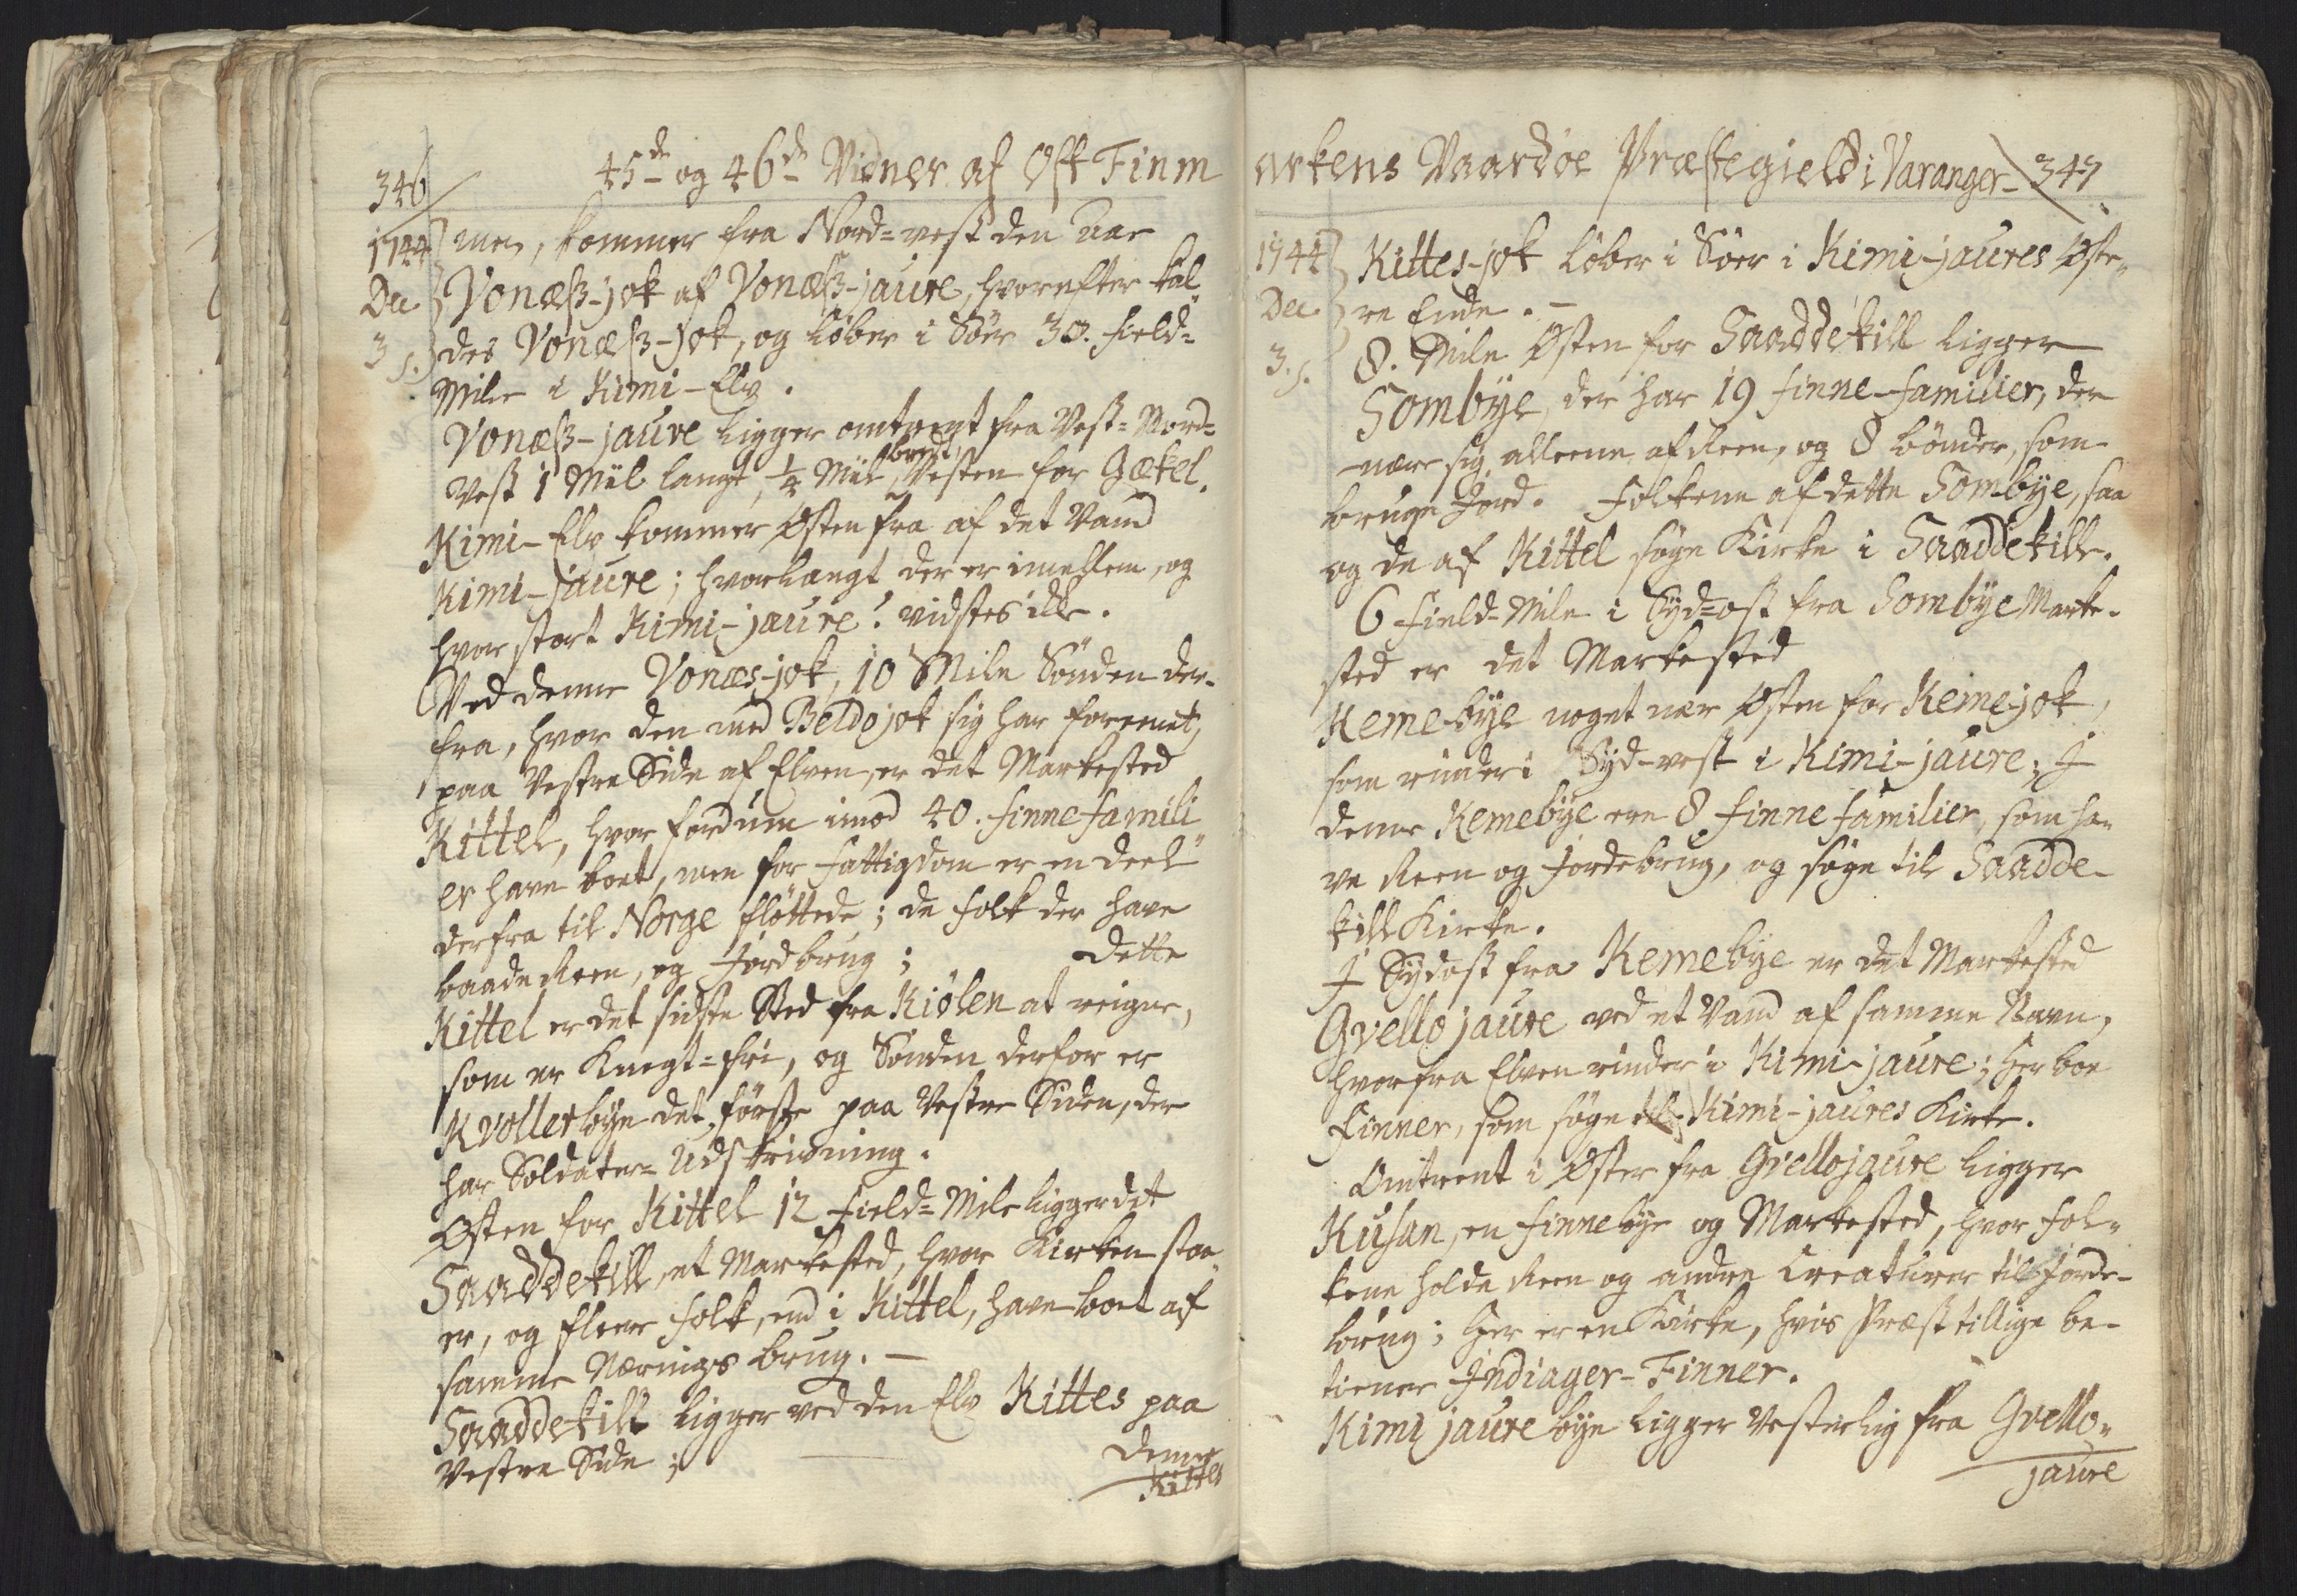 346
45de og 46de Vidner af Ost Finm
1744
Dec
3 s.
men, kommer fra Nord=vest den Aae
Vonæß-jok af Vonæß-jaure, hvorefter kal„
des Vonæß-jok, og løber i Söer 30. Field=
Mile i Kimi-Elv.
Vonæß-jaure ligger omtrent fra Vest=Nord=
Vest 1 Miil langt, ¼ Miil bredt, Vesten for Gækel.
Kimi-Elv kommer Østen fra af det Vand
Kimi-jaure; hvorlangt der er imellem, og
hvor stort Kimi-jaure? vidstes ikke.
Ved denne Vonæs-jok, 10 Mile Sönden der-
fra, hvor den med Beldojok sig har foreenet,
paa Vestre Side af Elven, er det Markested
Kittel, hvor fordum imod 40. finne famili„
er have boet, men for Fattigdom er en deel
derfra til Norge fløttede; de Folk der have
baade Reen, og Jordbrug; dette
Kittel er det sidste Sted fra Kiølen at reigne,
som er Knegt=frie, og Sönden derfor er
Kvollerbye det förste paa Vestre Siden, der
har Soldater=Udskrivning.
Østen for Kittel 12 Field=Mile ligger det
Saaddekill, et Markested, hvor Kirken staa„
er, og fleere Folk, end i Kittel, have boet af
samme Nærings brug. —
Saaddekill ligger ved den Elv Kittes paa
Vestre Side; denne
Kittes
arkens Vaardøe Præstegield i Varanger- 347
1744
Dec
3. s.
Kittes-jok løber i Söer i Kimi-jaures Øste„
re Ende. —
8. Mile Østen for Saaddekill ligger
Sombÿe, der har 19 finne-familier, der
nære sig alleene af Reen, og 8 bönder, som
bruge Jord. Folkene af dette Sombÿe, saa
og de af Kittel søge Kirke i Saaddekill.
6 Field-Mile i Syd=ost fra Sombÿe Marke-
sted er det Markested
Kemebÿe noget nær Østen for Keme-jok,
som rinder i Syd-vest i Kimi-jaure; I
denne Kemebÿe ere 8 finne familier, som ha„
ve Reen og Jordebrug, og søge til Saadde-
kill Kirke.
I Sydost fra Kemebÿe er det Markested
Gvellojaure ved et Vand af samme Navn,
hvorfra Elven rinder i Kimi-jaure; Her boe
Finner, som søge til Kimi-jaures Kirke.
Omtrent i Øster fra Gvellojaure ligger
Kusan, en finnebye og Markested, hvor Fol„
kene holde Reen og andre Creaturer til Jorde-
brug; Her er en Kirke, hvis Præst tillige be-
tiener Indiager-Finner.
Kimijaure bye ligger Vesterlig fra Gvello„
jaure